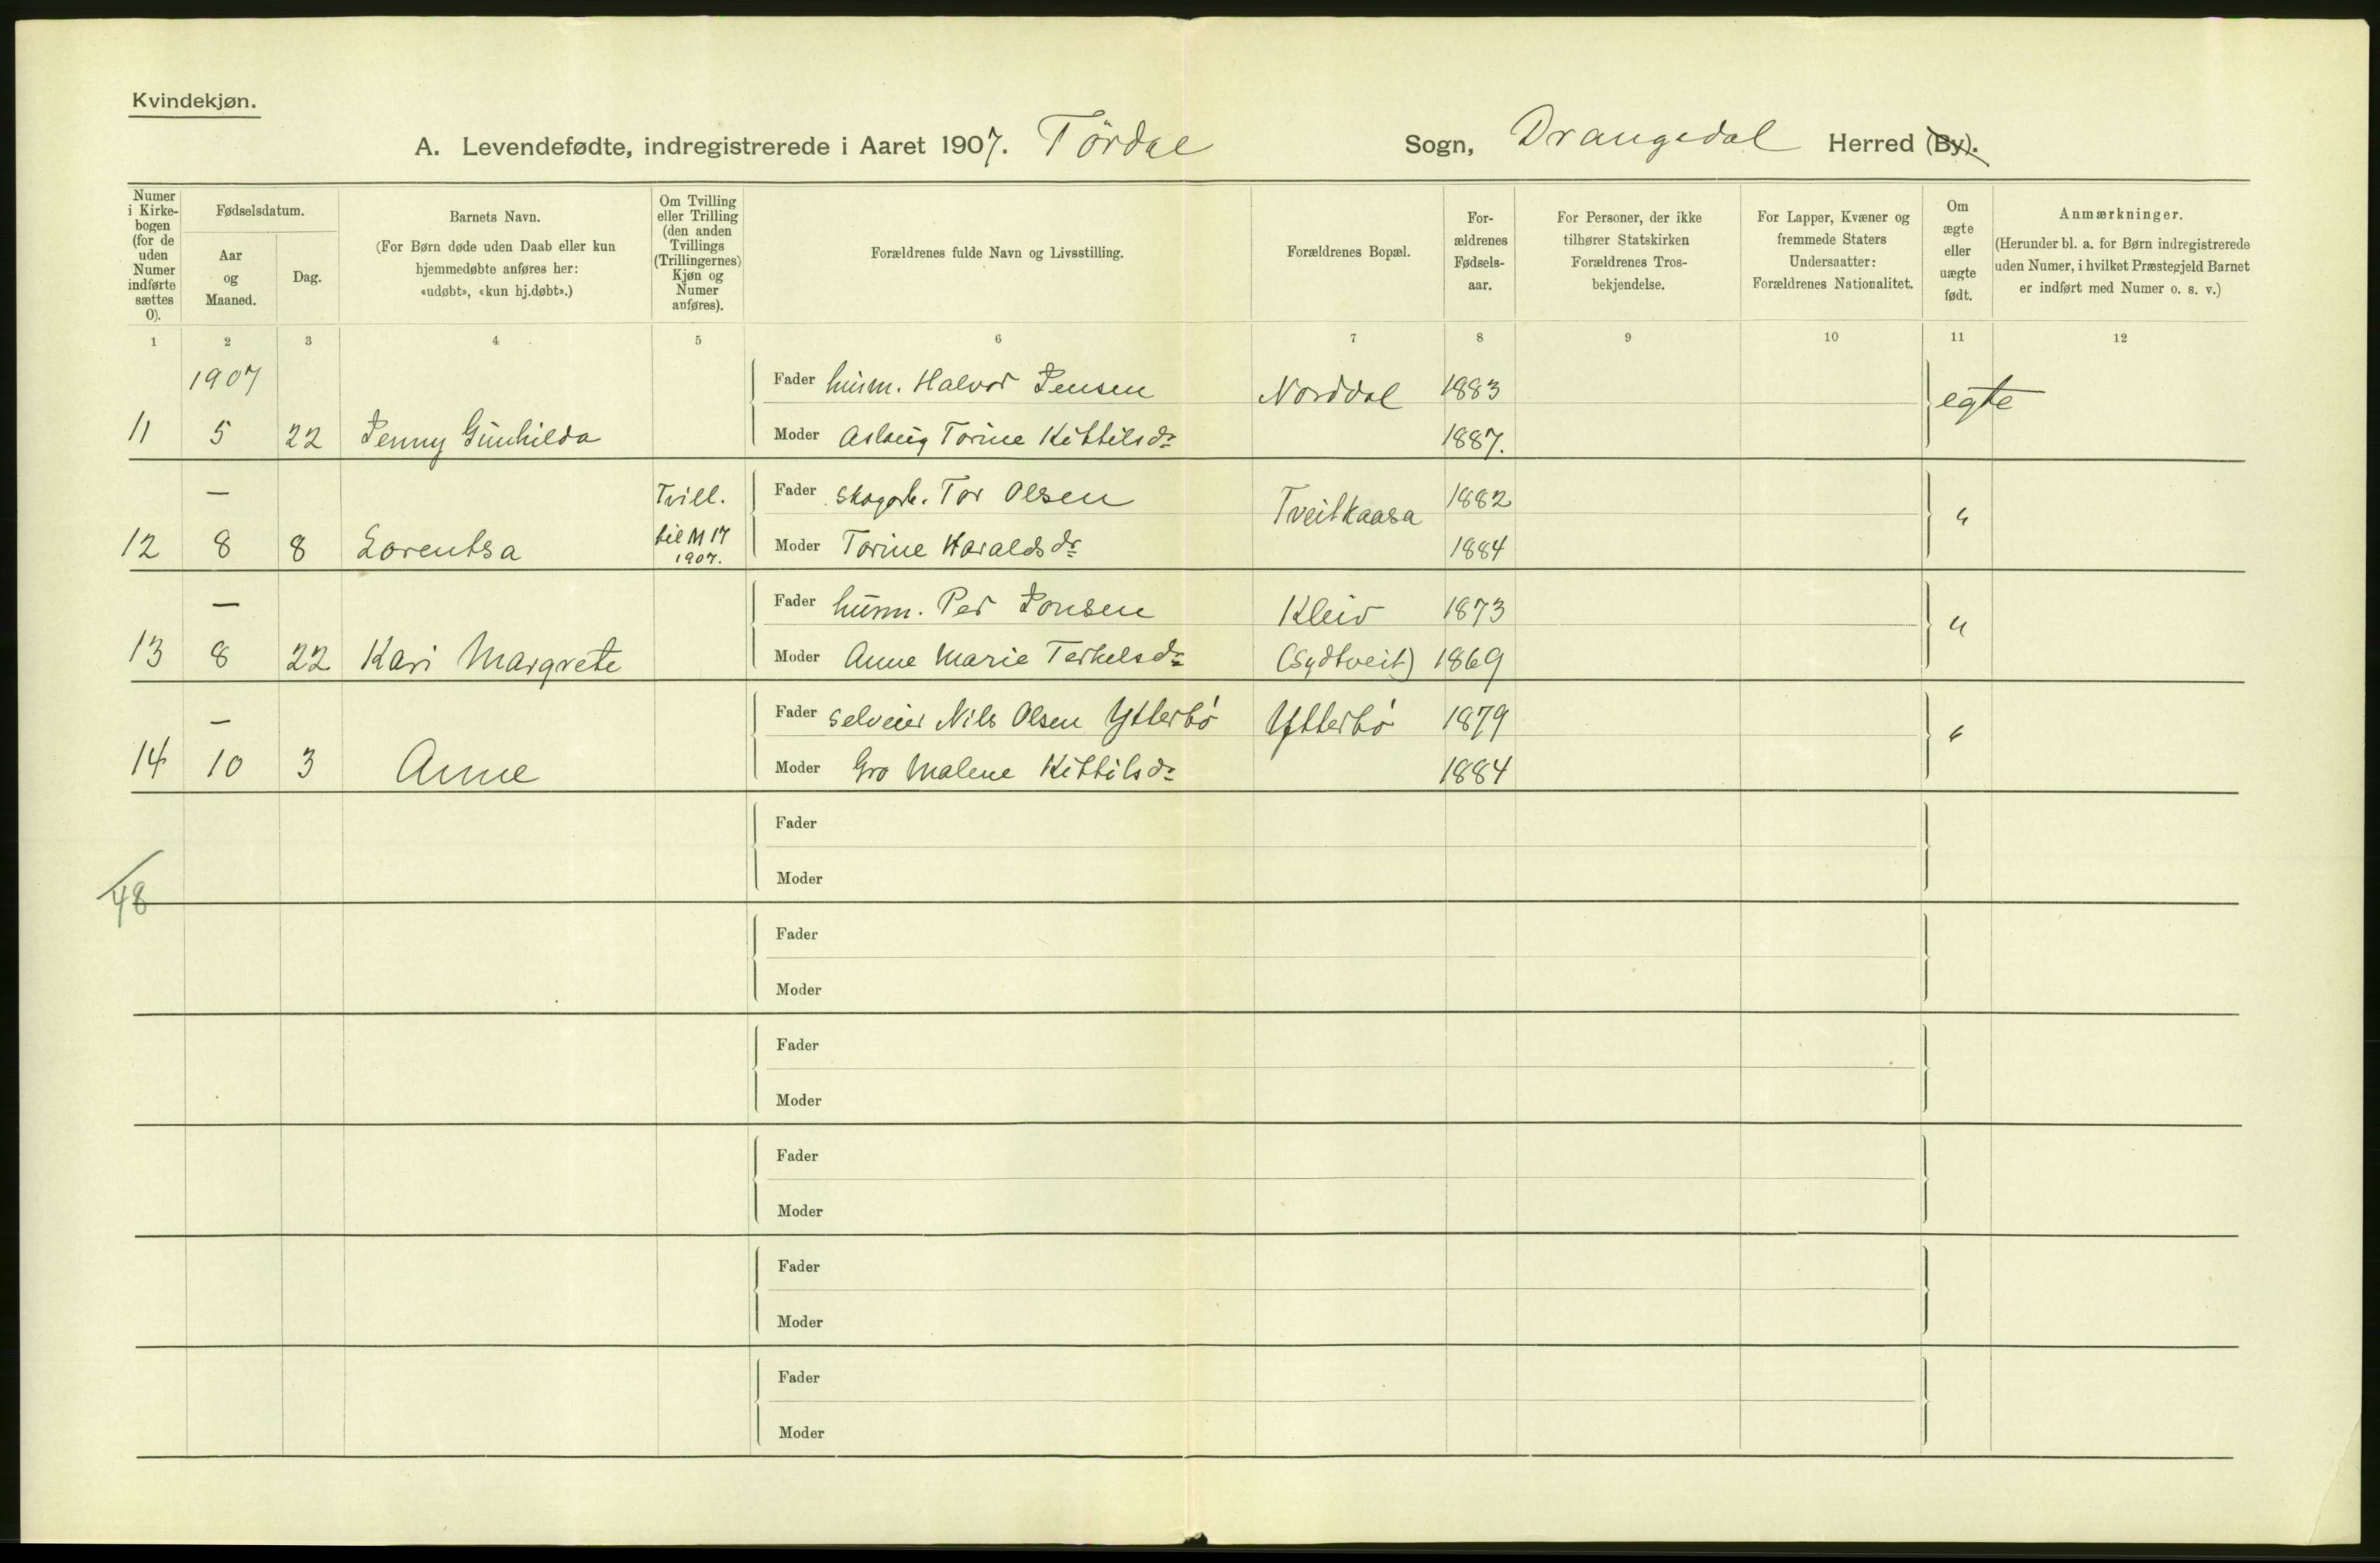 Kvindekjøn.
A. Levendefødte, indregistrerede i Aaret 1907. Tördal Sogn, Drangedal Herred (By).
Numer i Kirkebogen (for de uden Numer indførte sættes 0).
Fødselsdatum.
Aar og Maaned.
Dag.
Barnets Navn.
(For Børn døde uden Daab eller kun hjemmedøbte anføres her: «udøbt», «kun hj.døbt».)
Om Tvilling eller Trilling (den anden Tvillings (Trillingernes) Kjøn og Numer anføres).
Forældrenes fulde Navn og Livsstilling.
Forældrenes Bopæl.
Forældrenes Fødselsaar.
For Personer, der ikke tilhører Statskirken Forældrenes Trosbekjendelse.
For Lapper, Kvæner og fremmede Staters Undersaatter: Forældrenes Nationalitet.
Om ægte eller uægte født.
Anmærkninger.
(Herunder bl. a. for Børn indregistrerede uden Numer, i hvilket Præstegjeld Barnet er indført med Numer o. s. v.)
1 2 3 4 5 6 7 8 9 10 11 12
1907 Fader husm. Halvor Jensen Norddal 1883 egte
11 5 22 Jenny Gunhilda Moder Aslaug Torine Kittilsdr 1887.
— Tvill. Fader skogarb. Tor Olsen Tveitkaasa 1882 "
12 8 8 Lorentsa til M 17 1907. Moder Torine Haraldsdr 1884
— Fader husm. Per Jonsen Kleiv 1873 "
13 8 22 Kari Margrete Moder Anne Marie Terkelsdr (Sydtveit) 1869
— Fader selveier Nils Olsen Ytterbó Ytterbó 1879 "
14 10 3 Anne Moder Gro Malene Kittilsdr 1884
Fader
Moder
48
Fader
Moder
Fader
Moder
Fader
Moder
Fader
Moder
Fader
Moder